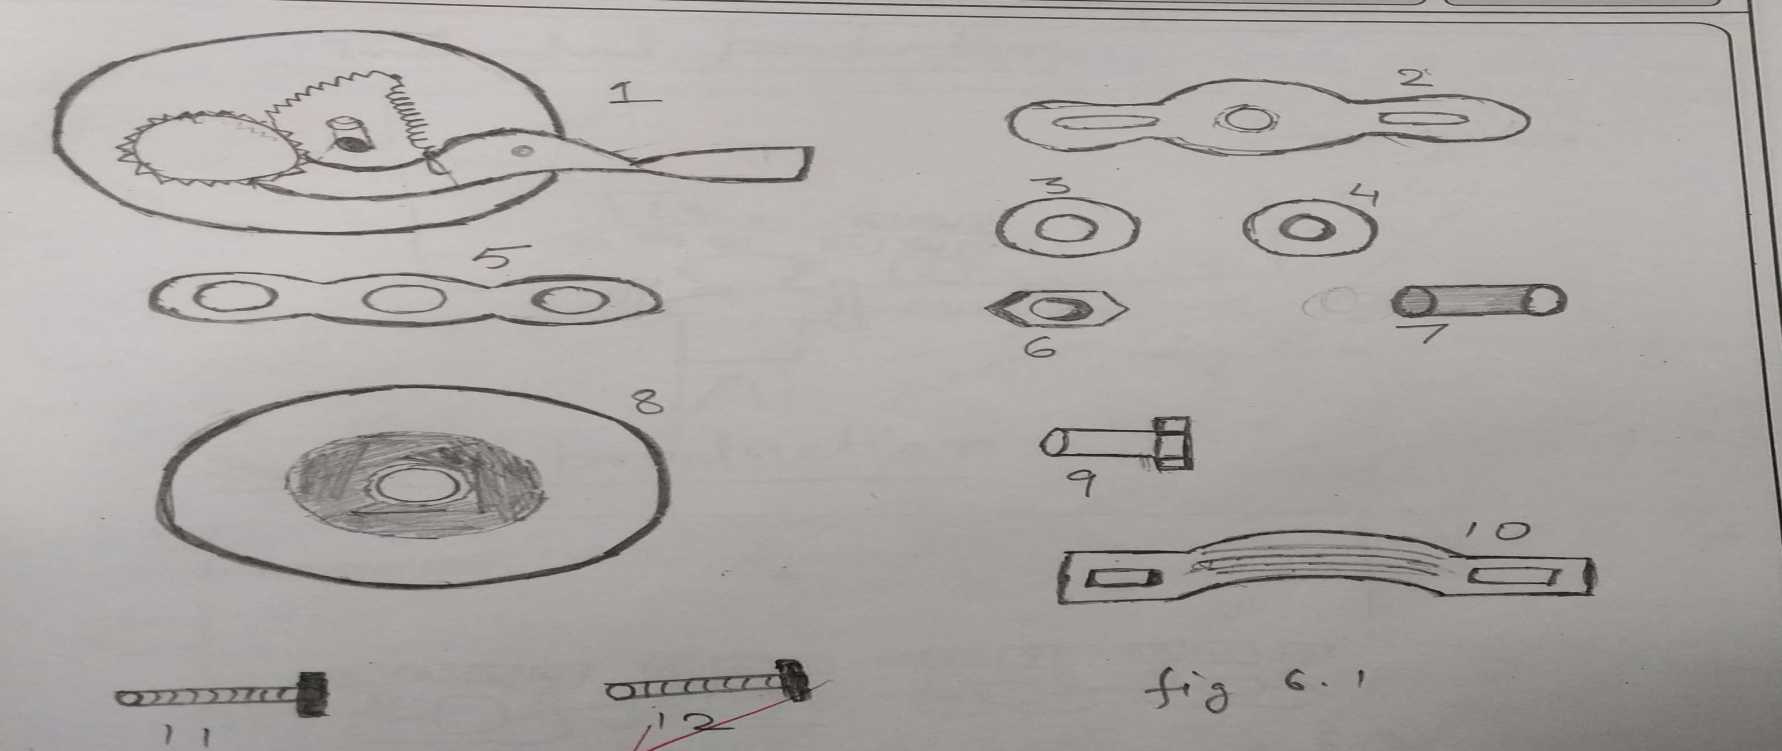 1
2
3
4
5
6
7
8
9
10
11
12
fig 6.1